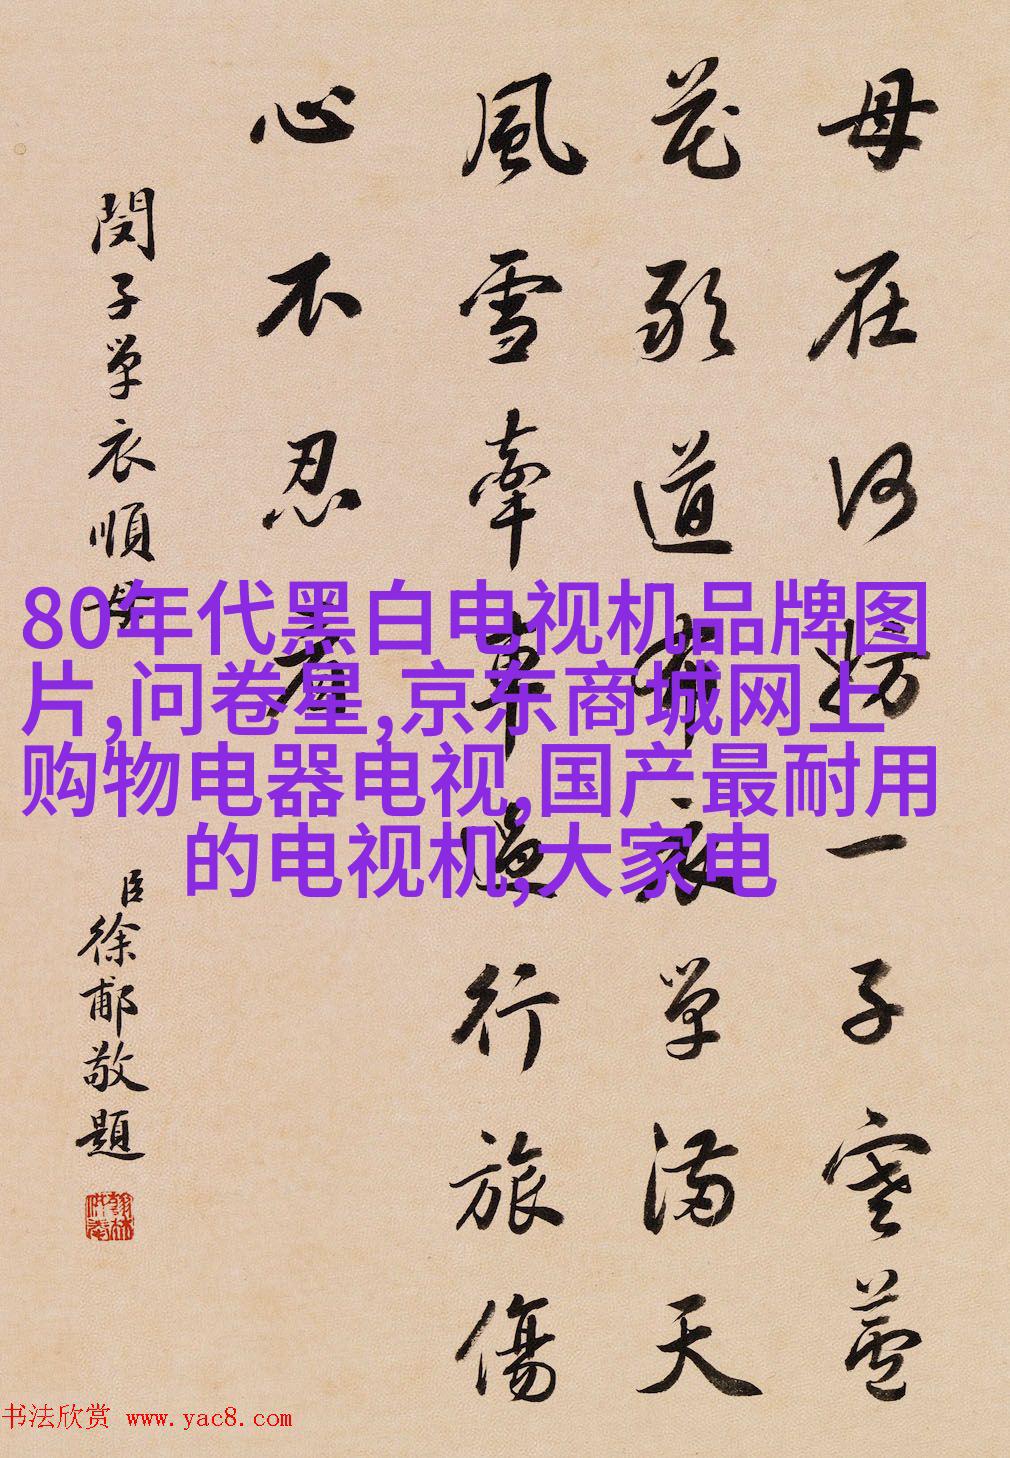 母在何妨一子寒蘆
花敢道布衣單滿天
風雪牽車過行旅傷
心不忍看
閔子單衣順母
臣徐郙敬題
翰林供奉
80年代黑白电视机品牌图
片,问卷星,京东商城网上
购物电器电视,国产最耐用
的电视机,大家电
书法欣赏 www.yac8.com